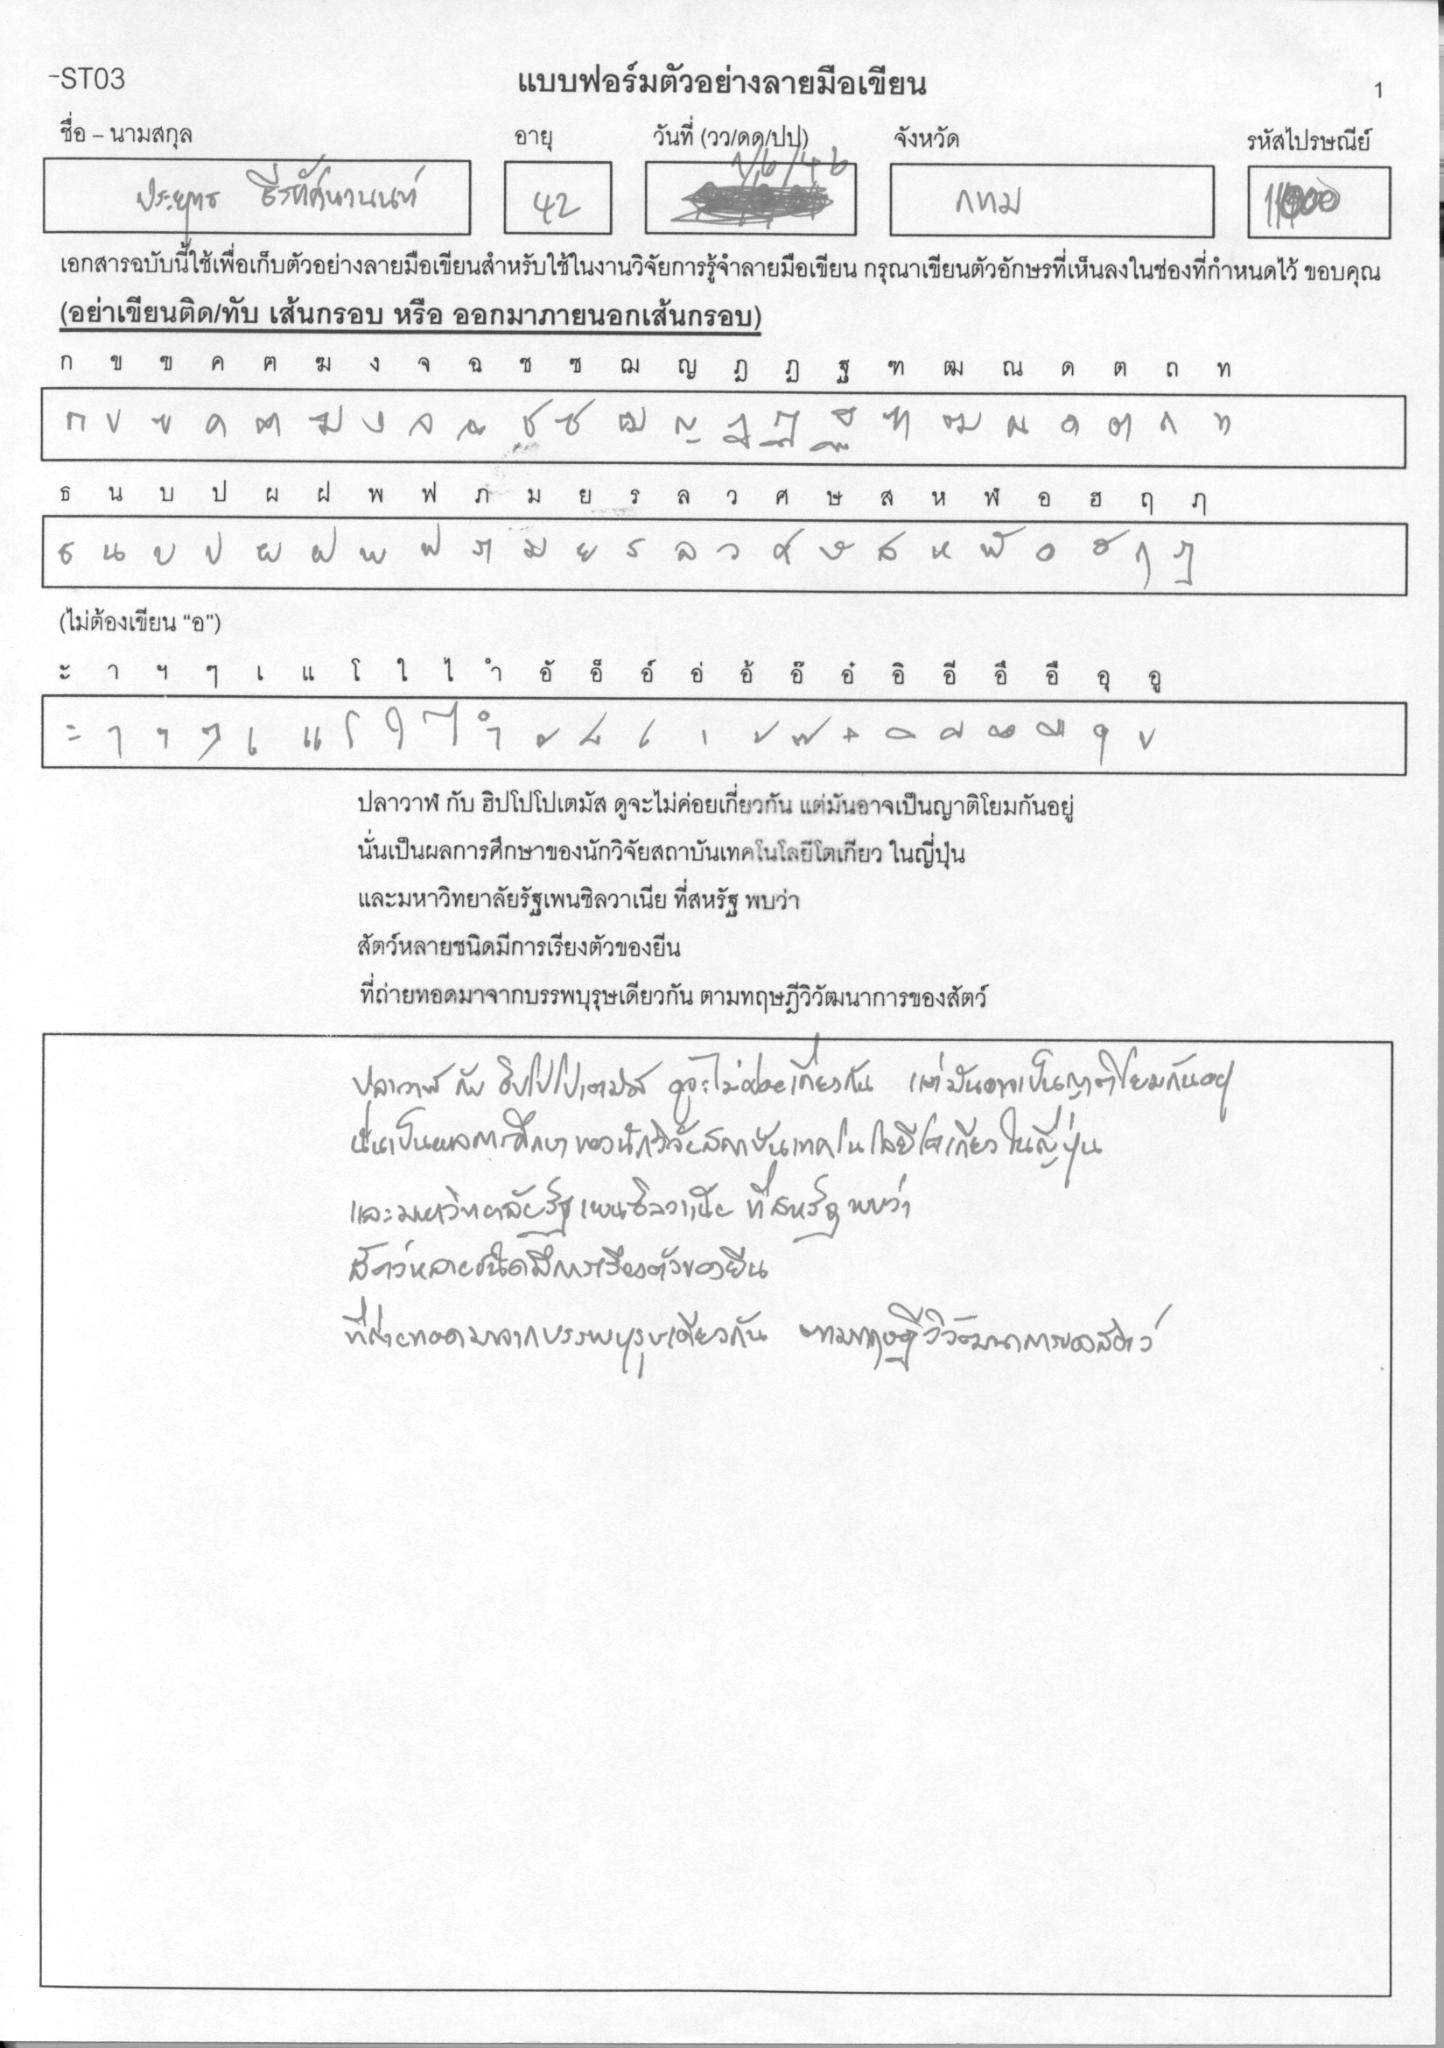 -ST03
แบบฟอร์มตัวอย่างลายมือเขียน
1
ชื่อ – นามสกุล อายุ วันที่ (วว/ดด/ปป) จังหวัด รหัสไปรษณีย์
ประยุทธ 42 1/6/46 กทม
เอกสารฉบับนี้ใช้เพื่อเก็บตัวอย่างลายมือเขียนสำหรับใช้ในงานวิจัยการรู้จำลายมือเขียน กรุณาเขียนตัวอักษรที่เห็นลงในช่องที่กำหนดไว้ ขอบคุณ
(อย่าเขียนติด/ทับ เส้นกรอบ หรือ ออกมาภายนอกเส้นกรอบ)
ก ข ฃ ค ฅ ฆ ง จ ฉ ช ซ ฌ ญ ฎ ฏ ฐ ฑ ฒ ณ ด ต ถ ท
ก ข ฃ ค ฅ ฆ ง จ ฉ ช ซ ฌ ญ ฎ ฏ ฐ ฑ ฒ ณ ด ต ถ ท
ธ น บ ป ผ ฝ พ ฟ ภ ม ย ร ล ว ศ ษ ส ห ฬ อ ฮ ฤ ฦ
ธ น บ ป ผ ฝ พ ฟ ภ ม ย ร ล ว ศ ษ ส ห ฬ อ ฮ ฤ ฦ
(ไม่ต้องเขียน “อ”)
ะ า ฯ ๆ เ แ โ ใ ไ ำ อั อ็ อ์ อ่ อ้ อ๊ อ๋ อิ อี อึ อื อุ อู
ะ า ฯ ๆ เ แ โ ใ ไ ำ ั ็ ์ ่ ้ ๊ ๋ ิ ี ึ ื ุ ู
ปลาวาฬ กับ ฮิปโปโปเตมัส ดูจะไม่ค่อยเกี่ยวกัน แต่มันอาจเป็นญาติโยมกันอยู่
นั่นเป็นผลการศึกษาของนักวิจัยสถาบันเทคโนโลยีโตเกียว ในญี่ปุ่น
และมหาวิทยาลัยรัฐเพนซิลวาเนีย ที่สหรัฐ พบว่า
สัตว์หลายชนิดมีการเรียงตัวของยีน
ที่ถ่ายทอดมาจากบรรพบุรุษเดียวกัน ตามทฤษฎีวิวัฒนาการของสัตว์
ปลาวาฬ กับ ฮิปโปโปเตมัส ดูจะไม่ค่อยเกี่ยวกัน แต่มันอาจเป็นญาติโยมกันอยู่
นั่นเป็นผลการศึกษาของนักวิจัยสถาบันเทคโนโลยีโตเกียว ในญี่ปุ่น
และมหาวิทยาลัยรัฐเพนซิลวาเนีย ที่สหรัฐ พบว่า
สัตว์หลายชนิดมีการเรียงตัวของยีน
ที่ถ่ายทอดมาจากบรรพบุรุษเดียวกัน ตามทฤษฎีวิวัฒนาการของสัตว์